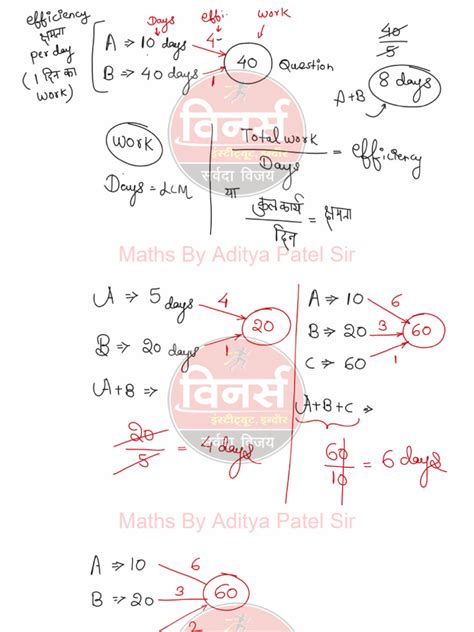 efficiency
क्षमता
per day
(1 दिन का
work)
Days effi. work
A ⇒ 10 days 4
B ⇒ 40 days 1
40
Question
40/5
8 days
A+B
work
Days = LCM
Total work / Days = efficiency
या
कुल कार्य / दिन = क्षमता
विनर्स
इंस्टीट्यूट, इन्दौर
सर्वदा विजय
Maths By Aditya Patel Sir
A ⇒ 5 days 4
B ⇒ 20 days 1
20
A+B ⇒
20/5 = 4 days
A ⇒ 10 6
B ⇒ 20 3
C ⇒ 60 1
60
A+B+C ⇒
60/10 = 6 days
विनर्स
इंस्टीट्यूट, इन्दौर
सर्वदा विजय
Maths By Aditya Patel Sir
A ⇒ 10 6
B ⇒ 20 3
60
विनर्स